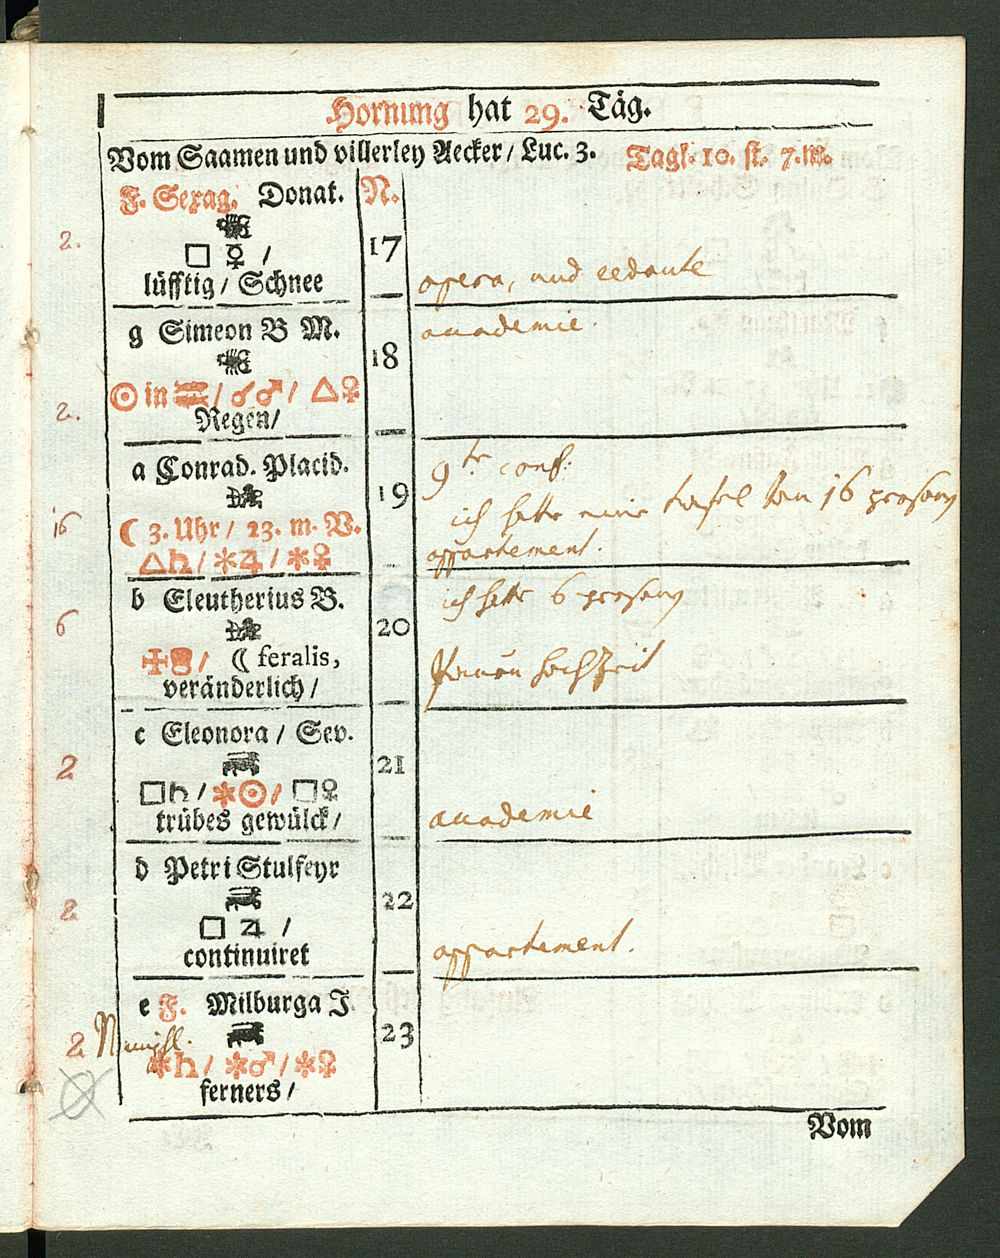 Hornung hat 29. Täg.
Vom Saamen und villerley Aecker / Luc. 3. Tagl. 10. st. 7. M.
F. Sexag. Donat. N.
2.
□ ☿ / 17
lüfftig / Schnee
opera, und redoute
g Simeon B M.
academie.
18
☉ in ♒ / ☌ ♂ / △ ♀
2. Regen /
a Conrad. Placid.
9te conf:
19
ich hatte eine tafel von 16 persohn
16 ☾ 3. Uhr / 23. m. V.
appartement.
△ ♄ / ✱ ♃ / ✱ ♀
b Eleutherius B.
ich hatte 6 persohn
6 20
☾ feralis,
hochzeit
veränderlich /
c Eleonora / Sev.
2 21
□ ♄ / ✱ ☉ / □ ♀
trübes gewülck /
academie
d Petri Stulfeyr
2 22
□ ♃ /
continuiret
appartement.
e F. Milburga J
2 23
✱ ♄ / ✱ ♂ / ✱ ♀
ferners /
Vom